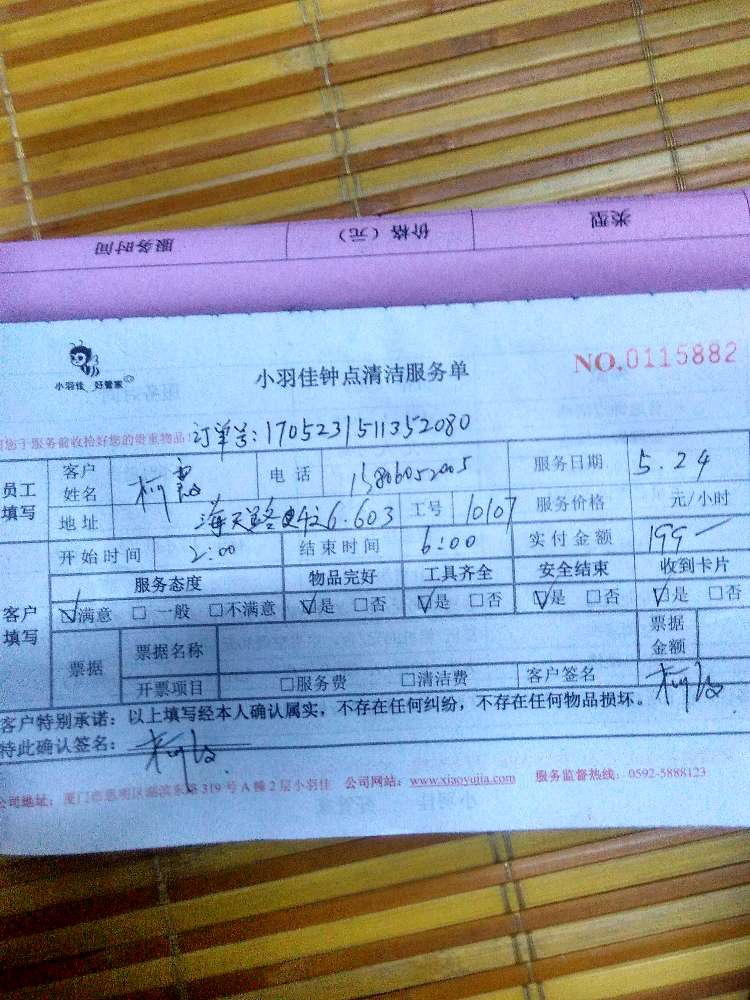 类型 价格（元） 服务时间
小羽佳 好管家
小羽佳钟点清洁服务单
NO.0115882
您于服务前收捡好您的贵重物品！ 订单号：1705231511352080
员工填写
客户姓名 柯 电话 服务日期 5.24
地址 海天路 426.603 工号 10107 服务价格 元/小时
开始时间 2:00 结束时间 6:00 实付金额 199
客户填写
服务态度 物品完好 工具齐全 安全结束 收到卡片
☑满意 □一般 □不满意 ☑是 □否 ☑是 □否 ☑是 □否 ☑是 □否
票据 票据名称 票据金额
开票项目 □服务费 □清洁费 客户签名 柯
客户特别承诺：以上填写经本人确认属实，不存在任何纠纷，不存在任何物品损坏。
特此确认签名： 柯
公司地址：厦门市思明区湖滨东路319号A幢2层小羽佳 公司网站：www.xiaoyujia.com 服务监督热线：0592-5888123